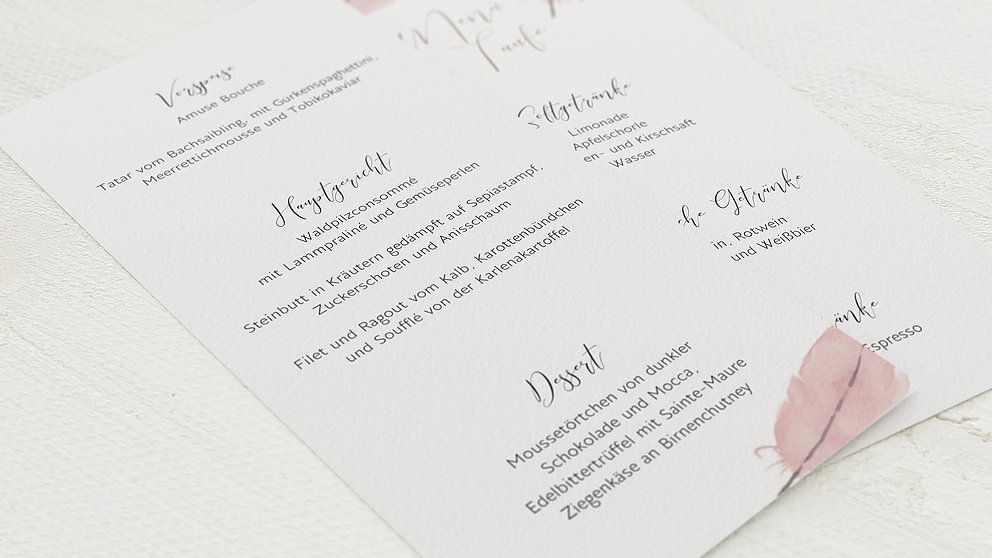 Menü
Taufe
Vorspeise
Amuse Bouche
Tatar vom Bachsaibling, mit Gurkenspaghettini,
Meerrettichmousse und Tobikokaviar
Hauptgericht
Waldpilzconsommé
mit Lammpraliné und Gemüseperlen
Steinbutt in Kräutern gedämpft auf Sepiastampf,
Zuckerschoten und Anisschaum
Filet und Ragout vom Kalb, Karottenbündchen
und Soufflé von der Karlenakartoffel
Dessert
Moussetörtchen von dunkler
Schokolade und Mocca,
Edelbittertrüffel mit Sainte-Maure
Ziegenkäse an Birnenchutney
Limonade
Apfelschorle
en- und Kirschsaft
Wasser
che Getränke
in, Rotwein
und Weißbier
änke
Espresso